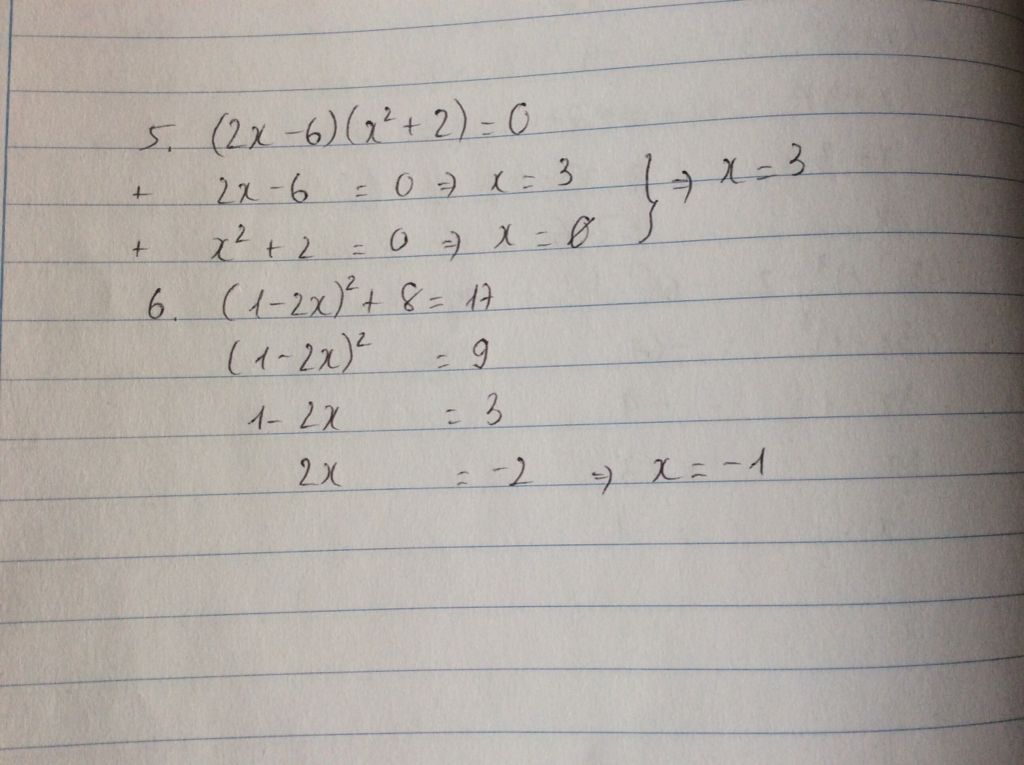 5. (2x - 6)(x² + 2) = 0
+ 2x - 6 = 0 ⇒ x = 3 } ⇒ x = 3
+ x² + 2 = 0 ⇒ x = ∅
6. (1 - 2x)² + 8 = 17
(1 - 2x)² = 9
1 - 2x = 3
2x = -2 ⇒ x = -1